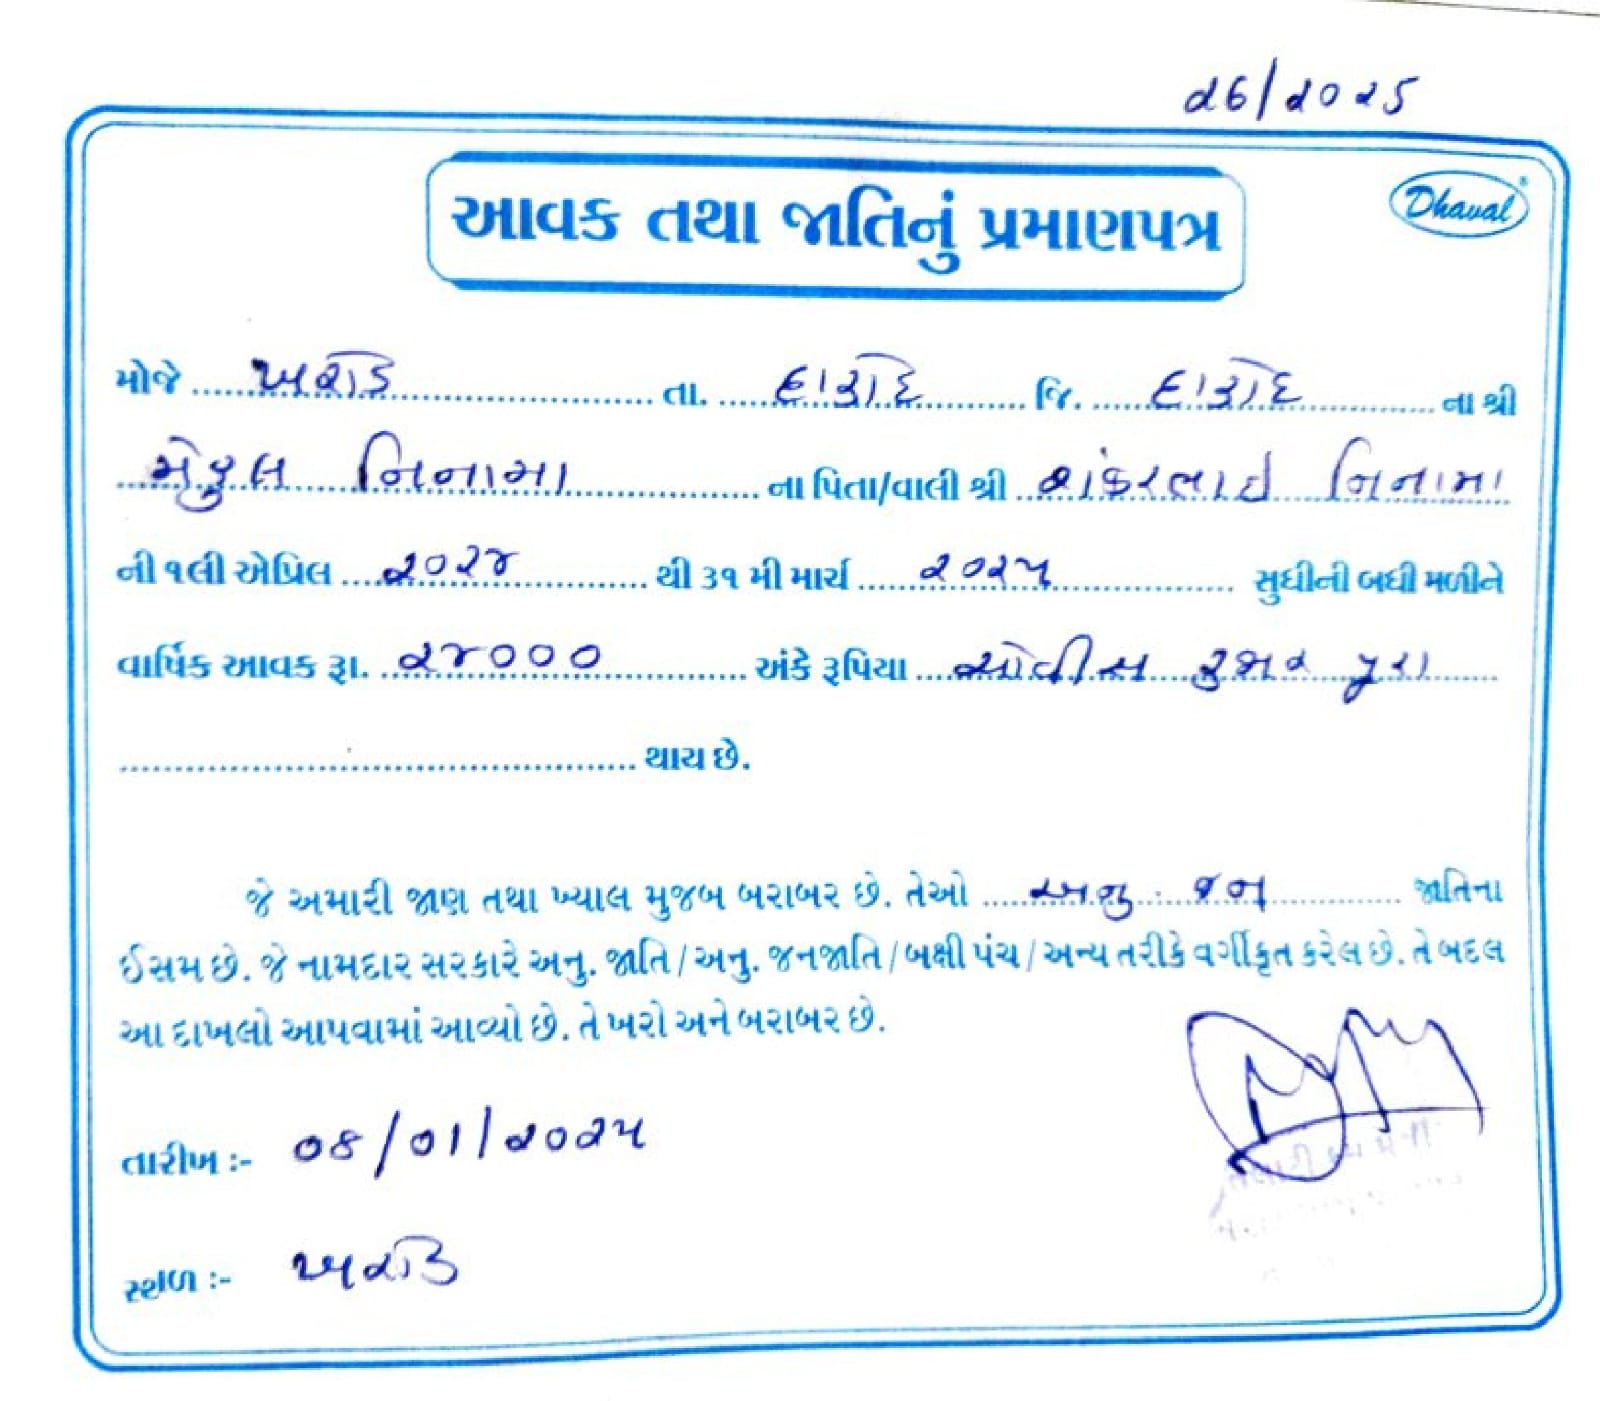 26/2025
Dhaval
આવક તથા જાતિનું પ્રમાણપત્ર
મોજે ખરોડ તા. દાહોદ જિ. દાહોદ ના શ્રી
મેહુલ નિનામા ના પિતા/વાલી શ્રી શંકરભાઈ નિનામા
ની ૧લી એપ્રિલ ૨૦૨૪ થી ૩૧ મી માર્ચ ૨૦૨૫ સુધીની બધી મળીને
વાર્ષિક આવક રૂા. ૨૪૦૦૦ અંકે રૂપિયા ચોવીસ હજાર પુરા
થાય છે.
જે અમારી જાણ તથા ખ્યાલ મુજબ બરાબર છે. તેઓ અનુ. જન જાતિના
ઈસમ છે. જે નામદાર સરકારે અનુ. જાતિ / અનુ. જનજાતિ / બક્ષી પંચ / અન્ય તરીકે વર્ગીકૃત કરેલ છે. તે બદલ
આ દાખલો આપવામાં આવ્યો છે. તે ખરો અને બરાબર છે.
તારીખ :- ૦૪/૦૧/૨૦૨૫
સ્થળ :- ખરોડ